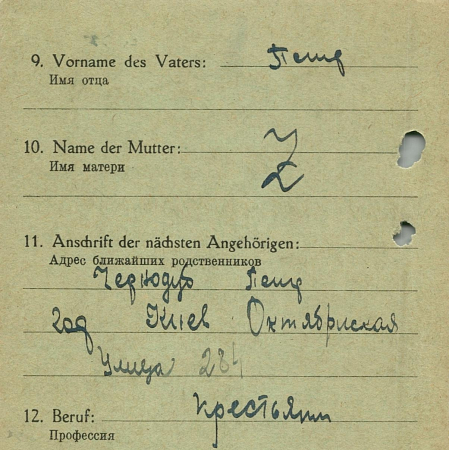 9. Vorname des Vaters: Петр
Имя отца
10. Name der Mutter: Z
Имя матери
11. Anschrift der nächsten Angehörigen:
Адрес ближайших родственников
Петр
Киев Октябриская
Улица 284
12. Beruf: крестьянин
Профессия